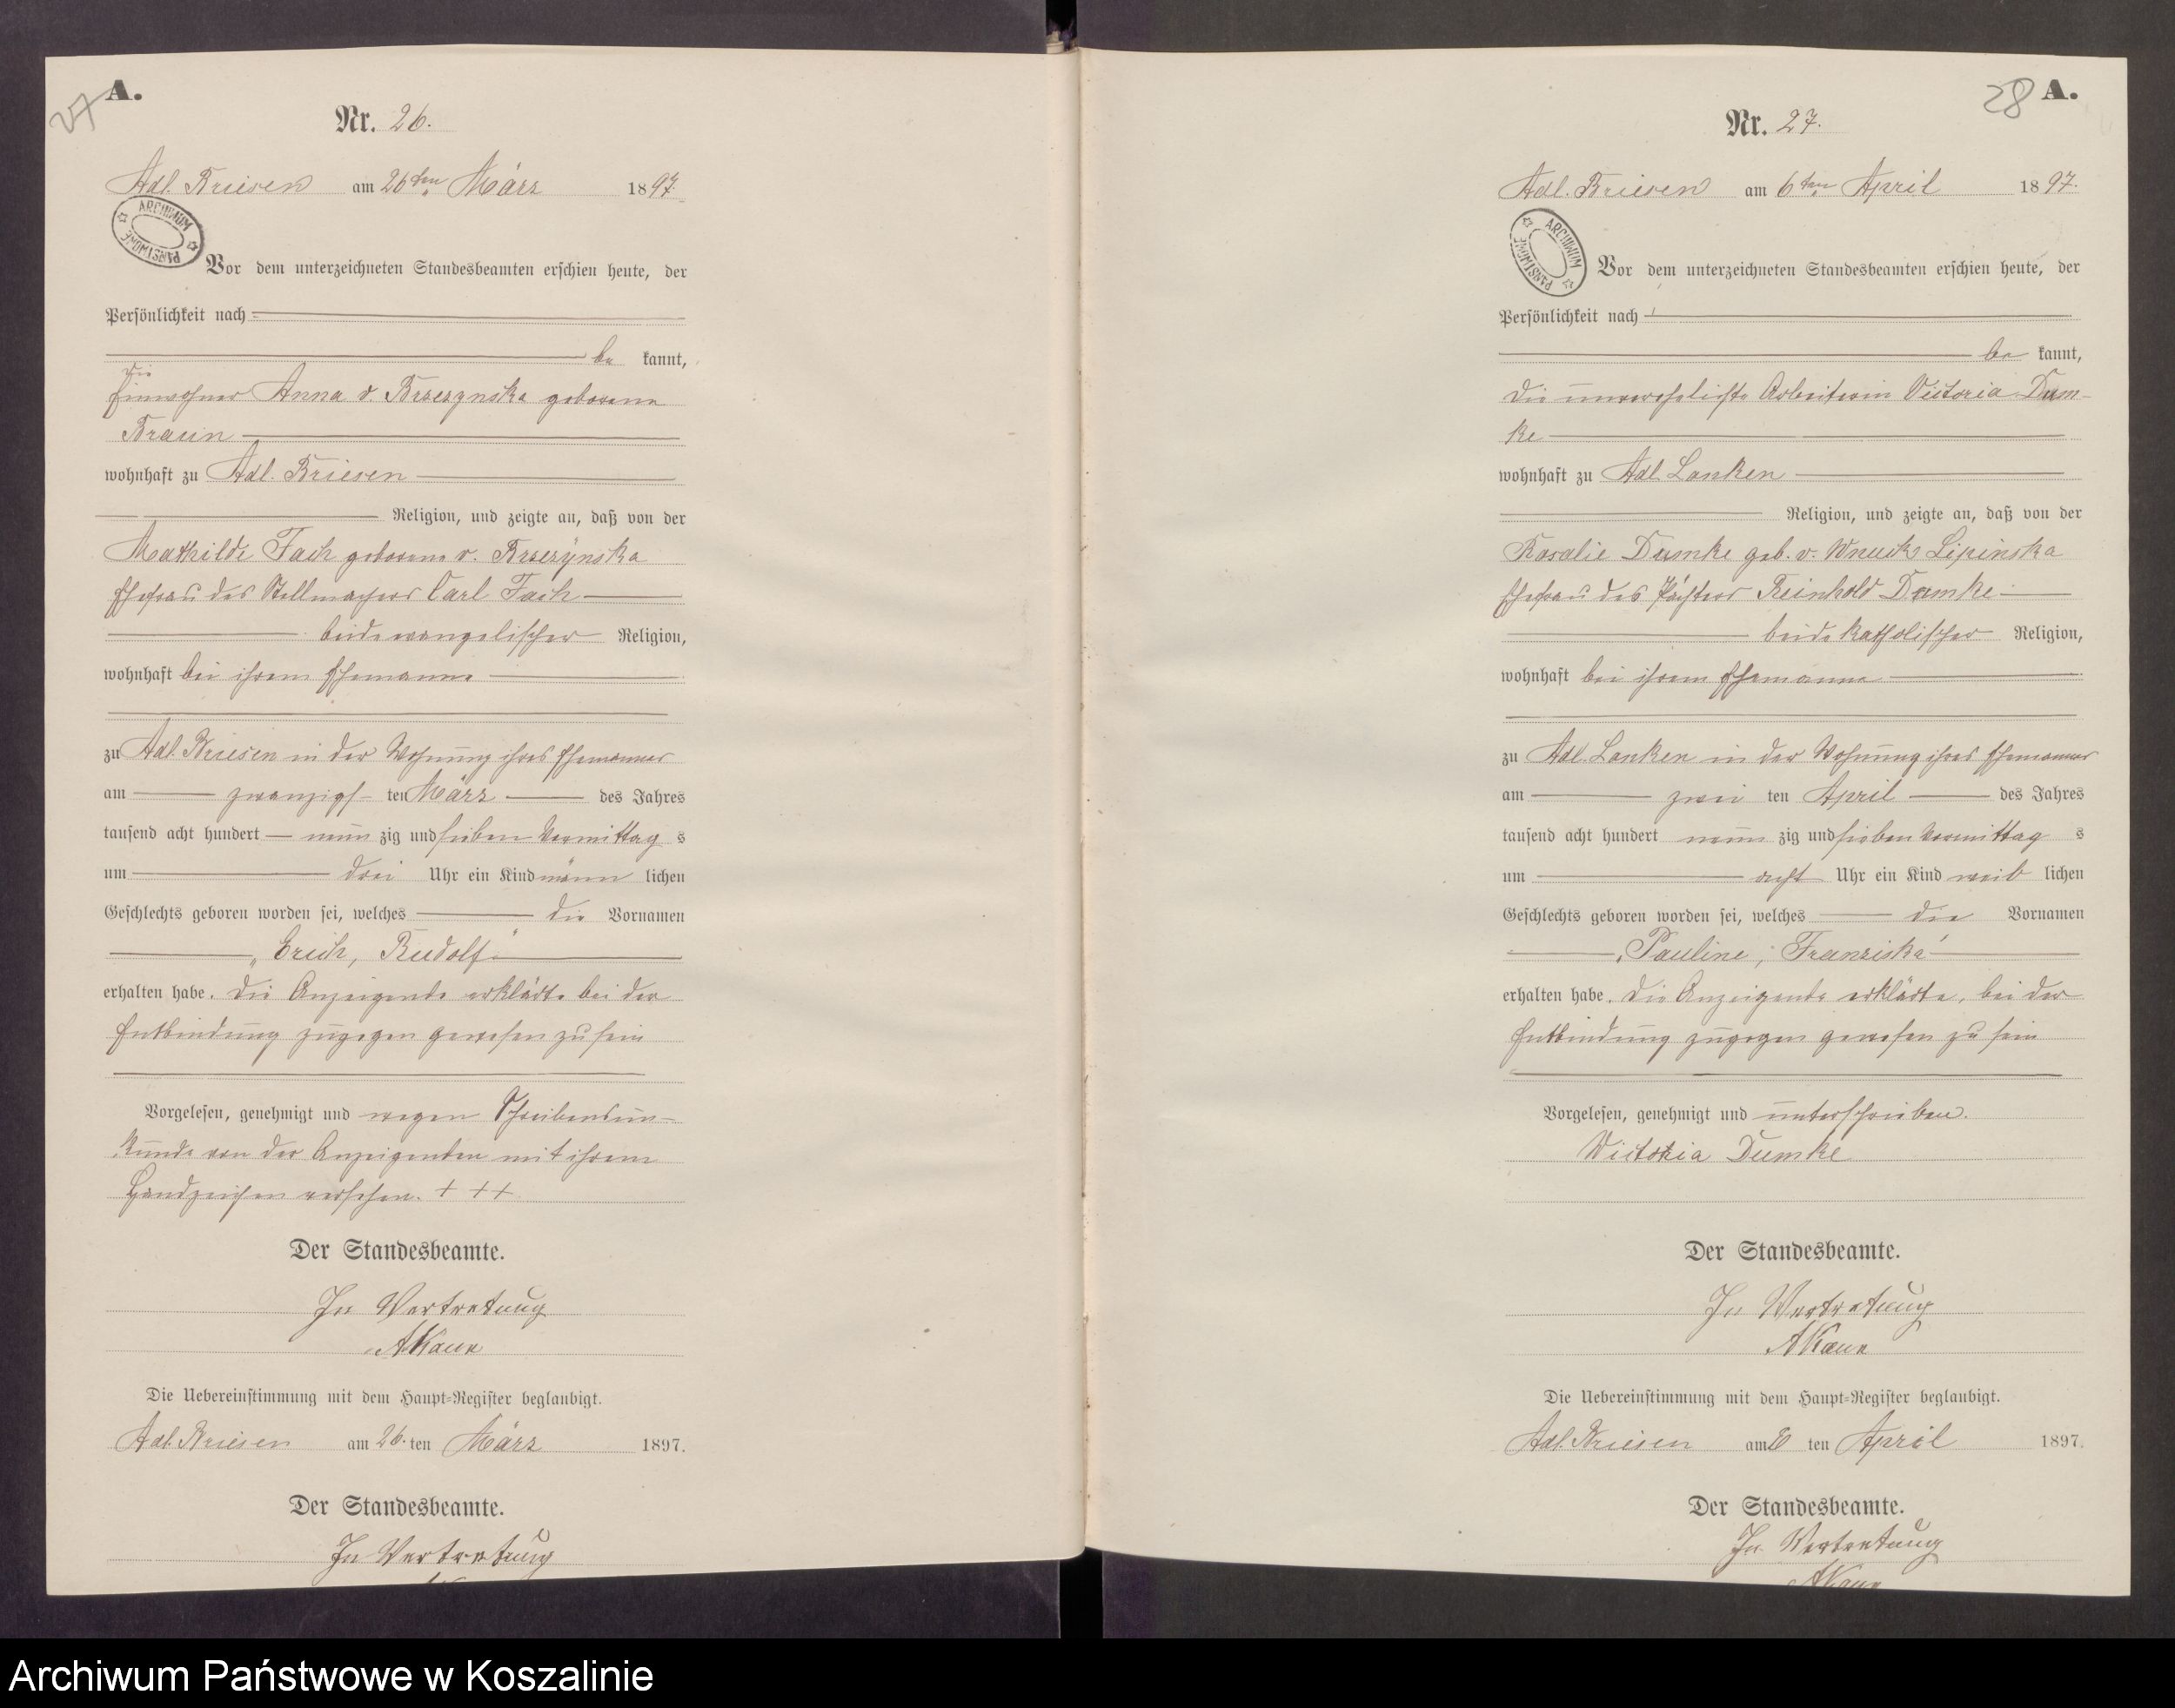 27 A.
Nr. 26.
Adl. Briesen am 26ten März 1897.
ARCHIWUM PAŃSTWOWE
Vor dem unterzeichneten Standesbeamten erschien heute, der
Persönlichkeit nach
be kannt,
die
Einwohner Anna v. Brzezynska geborene
Braun
wohnhaft zu Adl. Briesen
Religion, und zeigte an, daß von der
Mathilde Fach geborene v. Brzezynska
Ehefrau des Stellmachers Carl Fach
beide evangelischer Religion,
wohnhaft bei ihrem Ehemanne
zu Adl. Briesen in der Wohnung ihres Ehemannes
am zwanzigs ten März des Jahres
tausend acht hundert neun zig und sieben Vormittag s
um drei Uhr ein Kind männ lichen
Geschlechts geboren worden sei, welches die Vornamen
„Erich, Rudolf“
erhalten habe. Die Anzeigende erklärte bei der
Entbindung zugegen gewesen zu sein
Vorgelesen, genehmigt und wegen Schreibensun-
kunde von der Anzeigenden mit ihrem
Handzeichen versehen. + + +
Der Standesbeamte.
In Vertretung
AKaun
Die Uebereinstimmung mit dem Haupt-Register beglaubigt.
Adl. Briesen am 26. ten März 1897.
Der Standesbeamte.
In Vertretung
28 A.
Nr. 27.
Adl. Briesen am 6ten April 1897.
ARCHIWUM PAŃSTWOWE
Vor dem unterzeichneten Standesbeamten erschien heute, der
Persönlichkeit nach
be kannt,
die unverehelichte Arbeiterin Victoria Dum-
ke
wohnhaft zu Adl. Lanken
Religion, und zeigte an, daß von der
Rosalie Dumke geb. v. Wnuck Lipinska
Ehefrau des Pächters Reinhold Dumke
beide katholischer Religion,
wohnhaft bei ihrem Ehemanne
zu Adl. Lanken in der Wohnung ihres Ehemannes
am zwei ten April des Jahres
tausend acht hundert neun zig und sieben Vormittag s
um acht Uhr ein Kind weib lichen
Geschlechts geboren worden sei, welches die Vornamen
„Pauline, Franziska“
erhalten habe. Die Anzeigende erklärte, bei der
Entbindung zugegen gewesen zu sein
Vorgelesen, genehmigt und unterschrieben.
Victoria Dumke
Der Standesbeamte.
In Vertretung
AKaun
Die Uebereinstimmung mit dem Haupt-Register beglaubigt.
Adl. Briesen am 6 ten April 1897.
Der Standesbeamte.
In Vertretung
AKaun
Archiwum Państwowe w Koszalinie